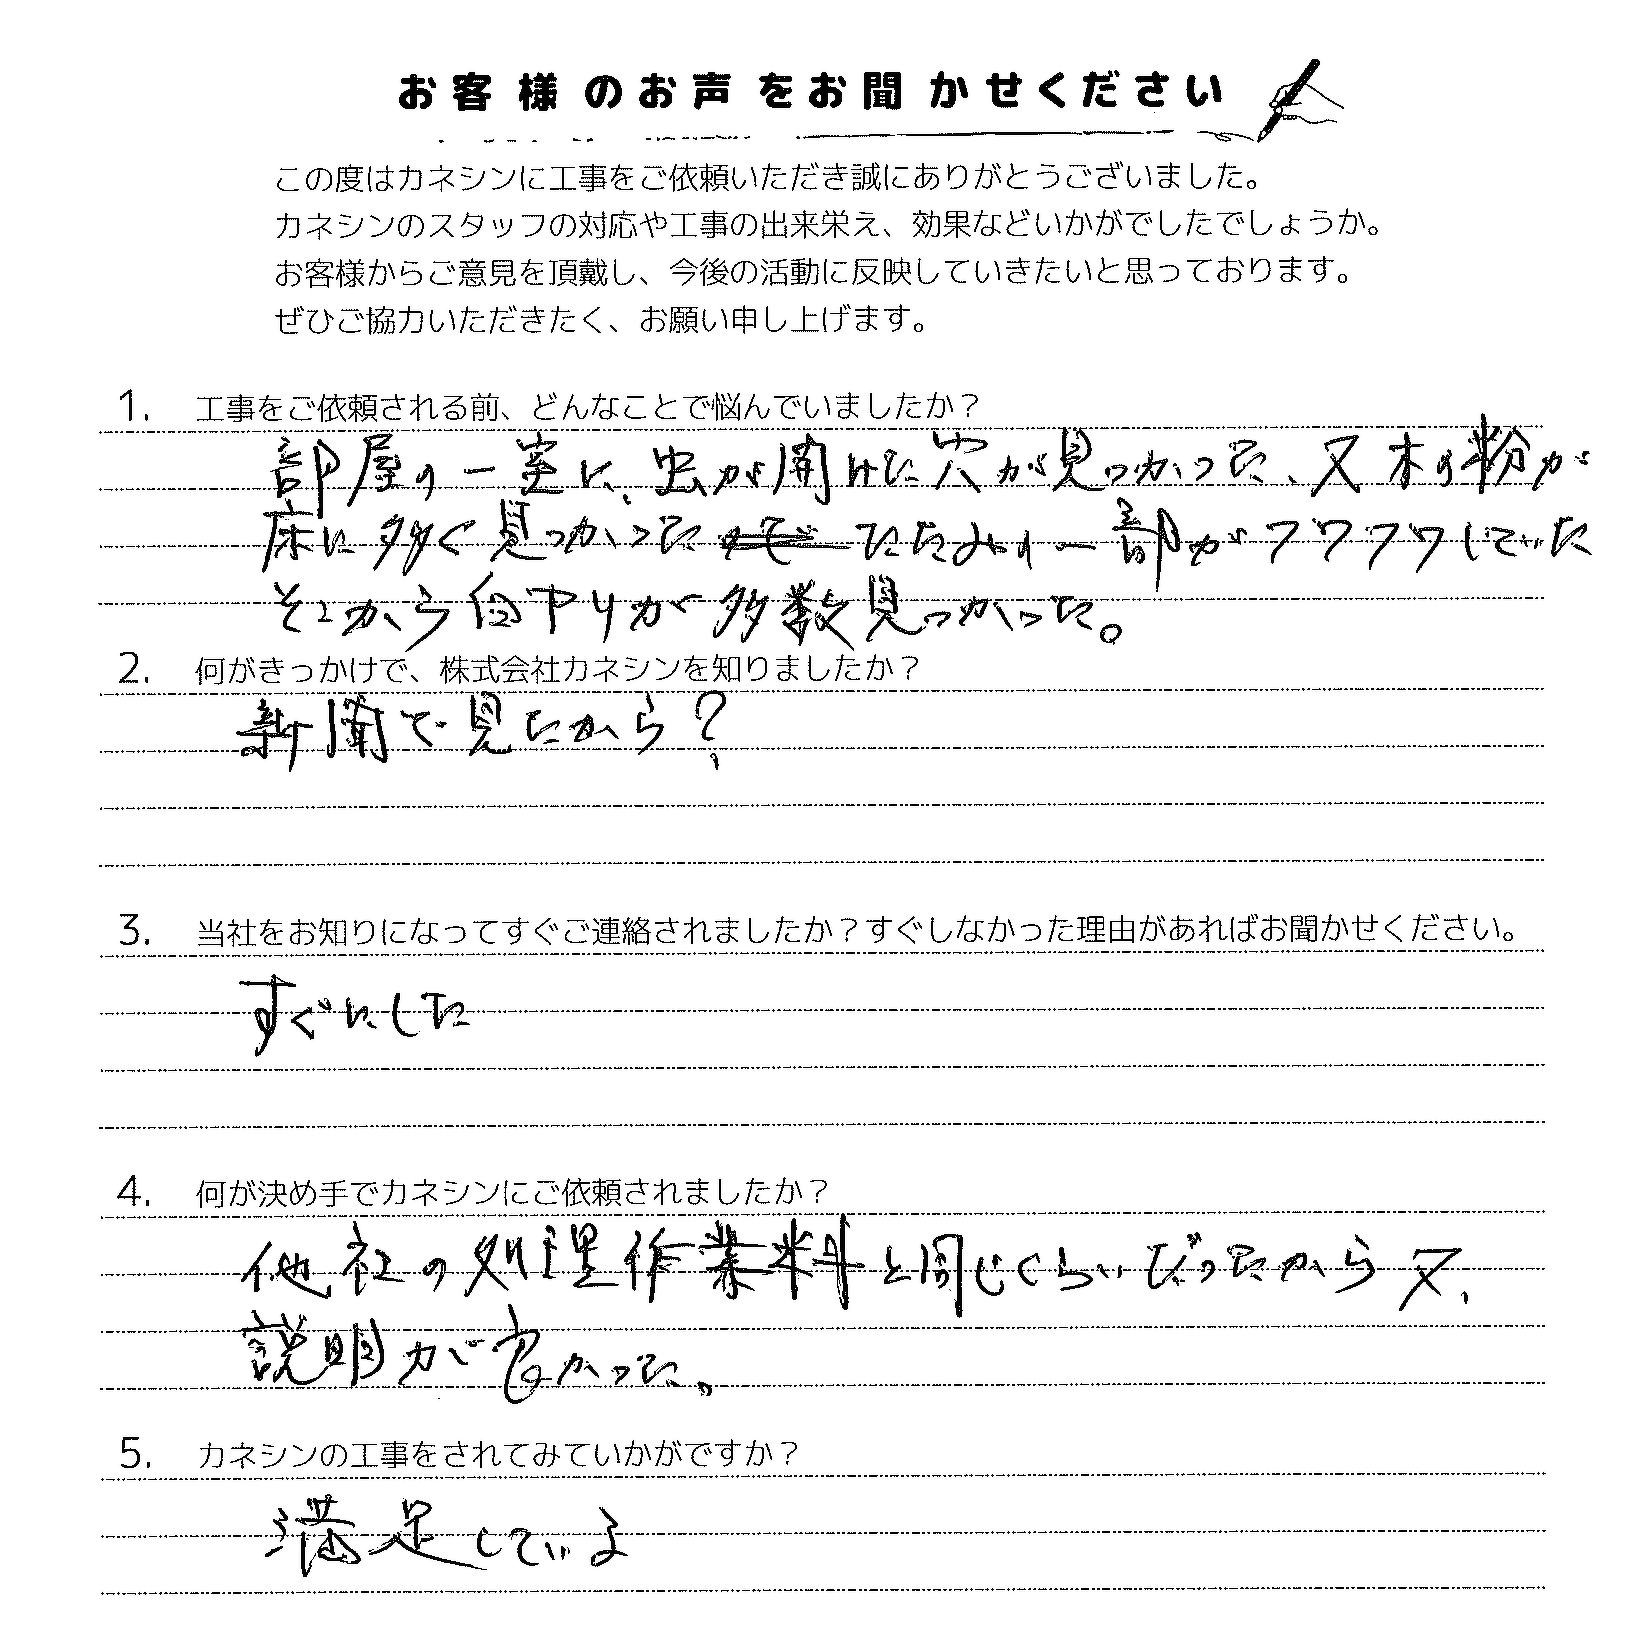 お客様のお声をお聞かせください
この度はカネシンに工事をご依頼いただき誠にありがとうございました。
カネシンのスタッフの対応や工事の出来栄え、効果などいかがでしたでしょうか。
お客様からご意見を頂戴し、今後の活動に反映していきたいと思っております。
ぜひご協力いただきたく、お願い申し上げます。
1. 工事をご依頼される前、どんなことで悩んでいましたか？
部屋の一室に、虫が開けた穴が見つかった、又木の粉が
床に多く見つかった たたみの一部がフワフワしていた
そこから白アリが多数見つかった。
2. 何がきっかけで、株式会社カネシンを知りましたか？
新聞で見たから？
3. 当社をお知りになってすぐご連絡されましたか？すぐしなかった理由があればお聞かせください。
すぐにした
4. 何が決め手でカネシンにご依頼されましたか？
他社の処理作業料と同じくらいだったから又、
説明が良かった。
5. カネシンの工事をされてみていかがですか？
満足している